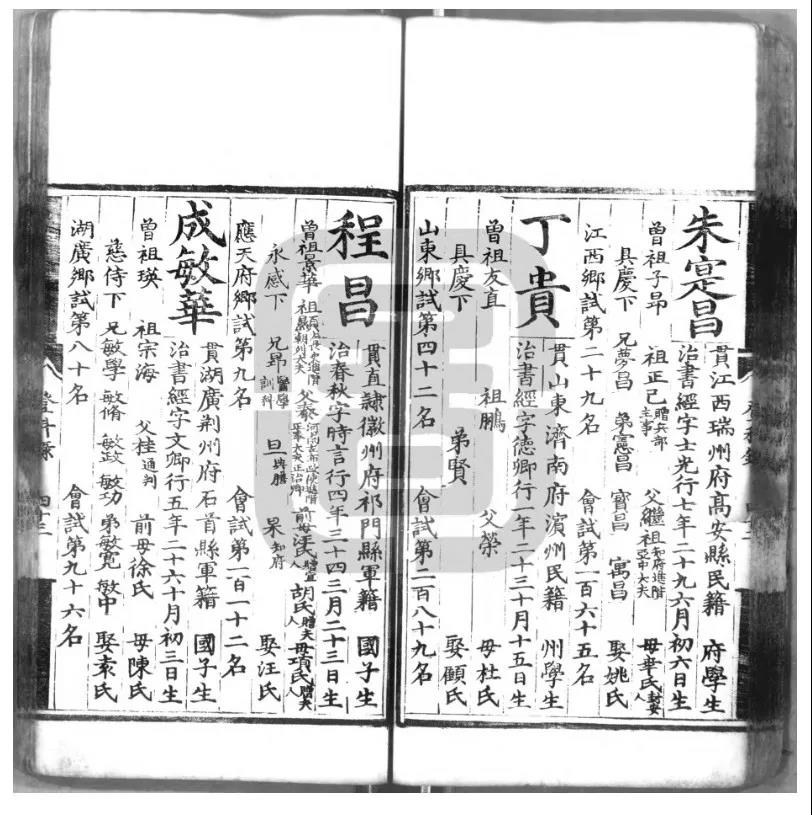 朱寔昌
貫江西瑞州府高安縣民籍 府學生
治書經字士光行七年二十九六月初六日生
曾祖子昂 祖正己贈兵部主事 父繼祖知府進階亞中大夫 母華氏
具慶下 兄夢昌 弟憲昌 寶昌 寓昌 娶姚氏
江西鄉試第二十九名 會試第一百六十五名
丁貴
貫山東濟南府濱州民籍 州學生
治書經字德卿行一年二十三十月十五日生
曾祖友直 祖鵬 父榮 母杜氏
具慶下 弟賢 娶顧氏
山東鄉試第四十二名 會試第二百八十九名
程昌
貫直隷徽州府祁門縣軍籍 國子生
治春秋字時言行四年三十四三月二十三日生
曾祖景華 祖 父泰 前母汪氏 胡氏 母項氏
永感下 兄昂醫學訓科 旦典膳 杲知府 娶汪氏
應天府鄉試第九名 會試第一百一十二名
成敏華
貫湖廣荆州府石首縣軍籍 國子生
治書經字文卿行五年二十六十月初三日生
曾祖瑛 祖宗海 父桂通判 前母徐氏 母陳氏
慈侍下 兄敏學 敏脩 敏政 敏功 弟敏寛 敏中 娶袁氏
湖廣鄉試第八十名 會試第九十六名
登科錄 四十三